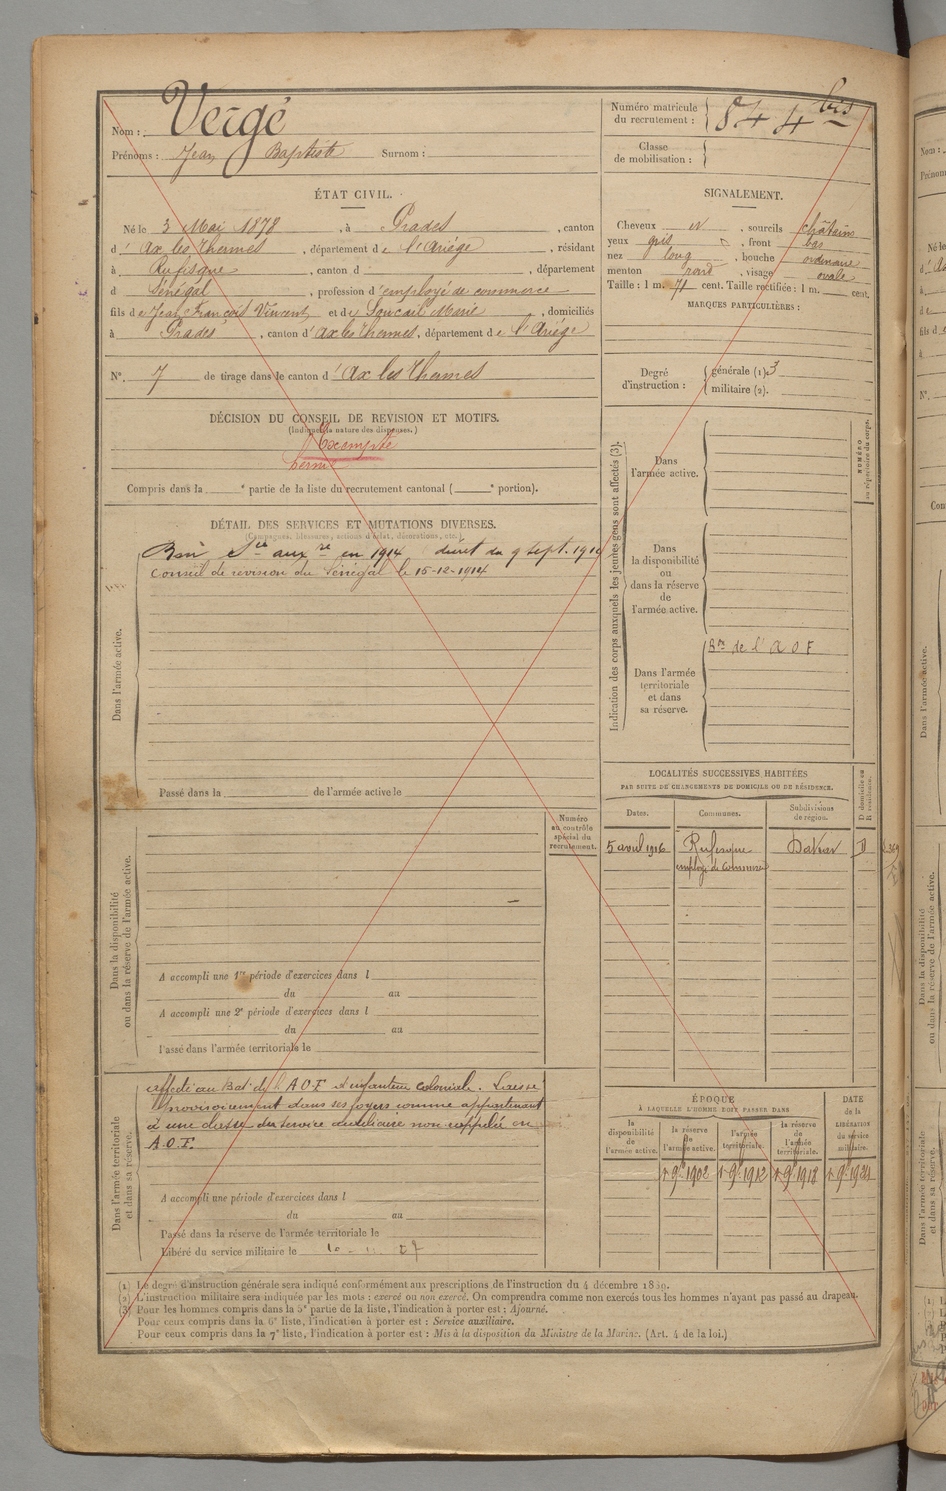 Nom : Vergé
Prénoms : Jean Baptiste Surnom :
ÉTAT CIVIL.
Né le 3 Mai 1878, à Prades, canton
d'Ax les Thermes, département de l'Ariège, résidant
à Rufisque, canton d , département
d Sénégal, profession d'employé de commerce
fils de Jean François Vincent et de Soucail Marie, domiciliés
à Prades, canton d'ax les Thermes, département de l'Ariège
N° 7 de tirage dans le canton d'Ax les Thermes
DÉCISION DU CONSEIL DE REVISION ET MOTIFS.
(Indiquer la nature des dispenses.)
Exempté
hernie
Compris dans la e partie de la liste du recrutement cantonal ( e portion).
DÉTAIL DES SERVICES ET MUTATIONS DIVERSES.
(Campagnes, blessures, actions d'éclat, décorations, etc.)
Bon Sce aux re en 1914 décret du 9 Sept. 1914
Conseil de révision du Sénégal le 15-12-1914
Dans l'armée active.
Passé dans la de l'armée active le
Numéro
au contrôle
spécial du
recrutement.
Dans la disponibilité
ou dans la réserve de l'armée active.
A accompli une 1re période d'exercices dans l
du au
A accompli une 2e période d'exercices dans l
du au
Passé dans l'armée territoriale le
Dans l'armée territoriale
et dans sa réserve.
affecté au Bat. de l'A O F d'infanterie coloniale. Laissé
provisoirement dans ses foyers comme appartenant
à une classe du service auxiliaire non rappelée en
A.O.F.
A accompli une période d'exercices dans l
du au
Passé dans la réserve de l'armée territoriale le
Libéré du service militaire le 10 - 11 27
Numéro matricule
du recrutement : 844 bis
Classe
de mobilisation :
SIGNALEMENT.
Cheveux N, sourcils châtains
yeux gris, front bas
nez long, bouche ordinaire
menton rond, visage ovale
Taille : 1 m. 71 cent. Taille rectifiée : 1 m. cent.
MARQUES PARTICULIÈRES :
Degré
d'instruction :
générale (1). 3
militaire (2).
Indication des corps auxquels les jeunes gens sont affectés (3).
NUMÉRO
au répertoire du corps.
Dans
l'armée active.
Dans
la disponibilité
ou
dans la réserve
de
l'armée active.
Dans l'armée
territoriale
et dans
sa réserve.
Bon de l'A O F
LOCALITÉS SUCCESSIVES HABITÉES
PAR SUITE DE CHANGEMENTS DE DOMICILE OU DE RÉSIDENCE.
D domicile ou
R résidence.
Dates. Communes. Subdivisions
de région.
5 avril 1906 Rufisque Dakar D
employé de commerce
ÉPOQUE
À LAQUELLE L'HOMME DOIT PASSER DANS
DATE
de la
LIBÉRATION
du service
militaire.
la
disponibilité
de
l'armée active.
la réserve
de
l'armée active.
l'armée
territoriale.
la réserve
de
l'armée
territoriale.
1 9bre 1902 1 9bre 1912 1 9bre 1918 1 9bre 1924
(1) Le degré d'instruction générale sera indiqué conformément aux prescriptions de l'instruction du 4 décembre 1889.
(2) L'instruction militaire sera indiquée par les mots : exercé ou non exercé. On comprendra comme non exercés tous les hommes n'ayant pas passé au drapeau.
(3) Pour les hommes compris dans la 5e partie de la liste, l'indication à porter est : Ajourné.
Pour ceux compris dans la 6e liste, l'indication à porter est : Service auxiliaire.
Pour ceux compris dans la 7e liste, l'indication à porter est : Mis à la disposition du Ministre de la Marine. (Art. 4 de la loi.)